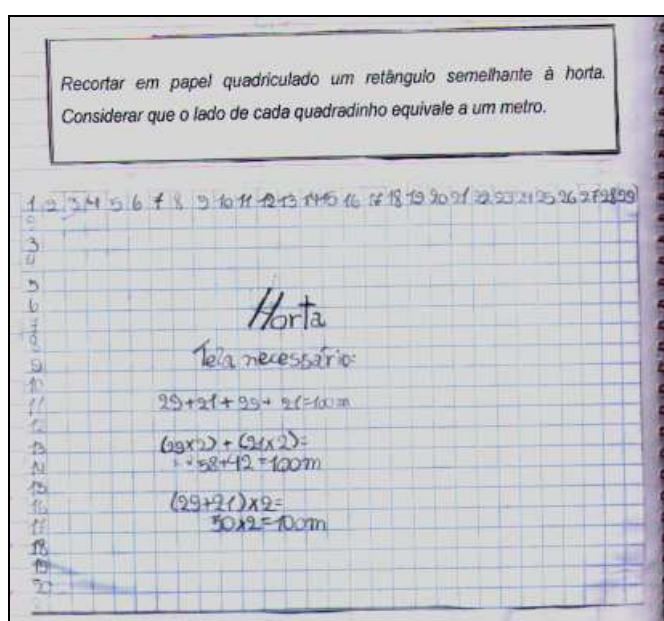 Recortar em papel quadriculado um retângulo semelhante à horta.
Considerar que o lado de cada quadradinho equivale a um metro.
1 2 3 4 5 6 7 8 9 10 11 12 13 14 15 16 17 18 19 20 21 22 23 24 25 26 27 28 29
3
5
6
7
8
9
10
11
12
13
14
15
16
17
18
19
20
Horta
Tela necessário:
29+21+29+21=100m
(29x2)+(21x2)=
58+42=100m
(29+21)x2=
50x2=100m